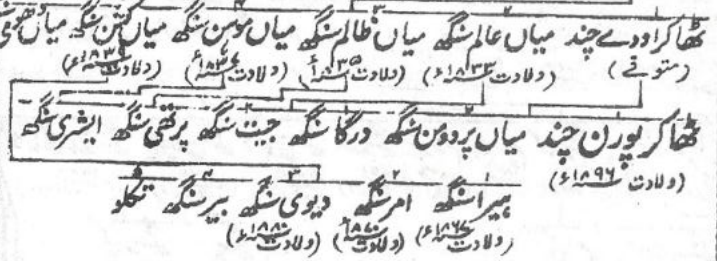 ٹھاکر اودے چند میاں عالم سنگھ میاں ظالم سنگھ میاں مومن سنگھ میاں سنگھ میاں
(متوفی) (ولادت ۱۸۳۳ء) (ولادت ۱۸۳۵ء) (ولادت ۱۸۳۶ء) (ولادت ۱۸۳۹ء)
ٹھاکر پورن چند میاں پردومن سنگھ درگا سنگھ جیت سنگھ پرتھی سنگھ ایشری سنگھ
(ولادت ۱۸۹۶ء)
ہیرا سنگھ امر سنگھ دیوی سنگھ بیر سنگھ تگلو
(ولادت ۱۸۶۷ء) (ولادت ۱۸۷۰ء) (ولادت ۱۸۸۰ء)